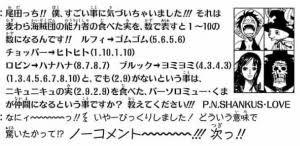 尾田っち!! 僕、すごい事に気づいちゃいました!!! それは
麦わら海賊団の能力者の食べた実を、数で表すと1〜10の
数になるんです!! ルフィ→ゴムゴム(5.6.5.6)
チョッパー→ヒトヒト(1.10.1.10)
ロビン→ハナハナ(8.7.8.7) ブルック→ヨミヨミ(4.3.4.3)
(1.3.4.5.6.7.8.10)と、でも(2.9)がないという事は、
ニキュニキュの実(2.9.2.9)を食べた、バーソロミュー・くま
が仲間になるという事ですか? 教えてください!!! P.N.SHANKUS・LOVE
:なにィ〜〜〜〜っ!! いやーびっくりしました! どういう意味で
驚いたかって!? ノーコメント〜〜〜〜〜!!! 次っ!!